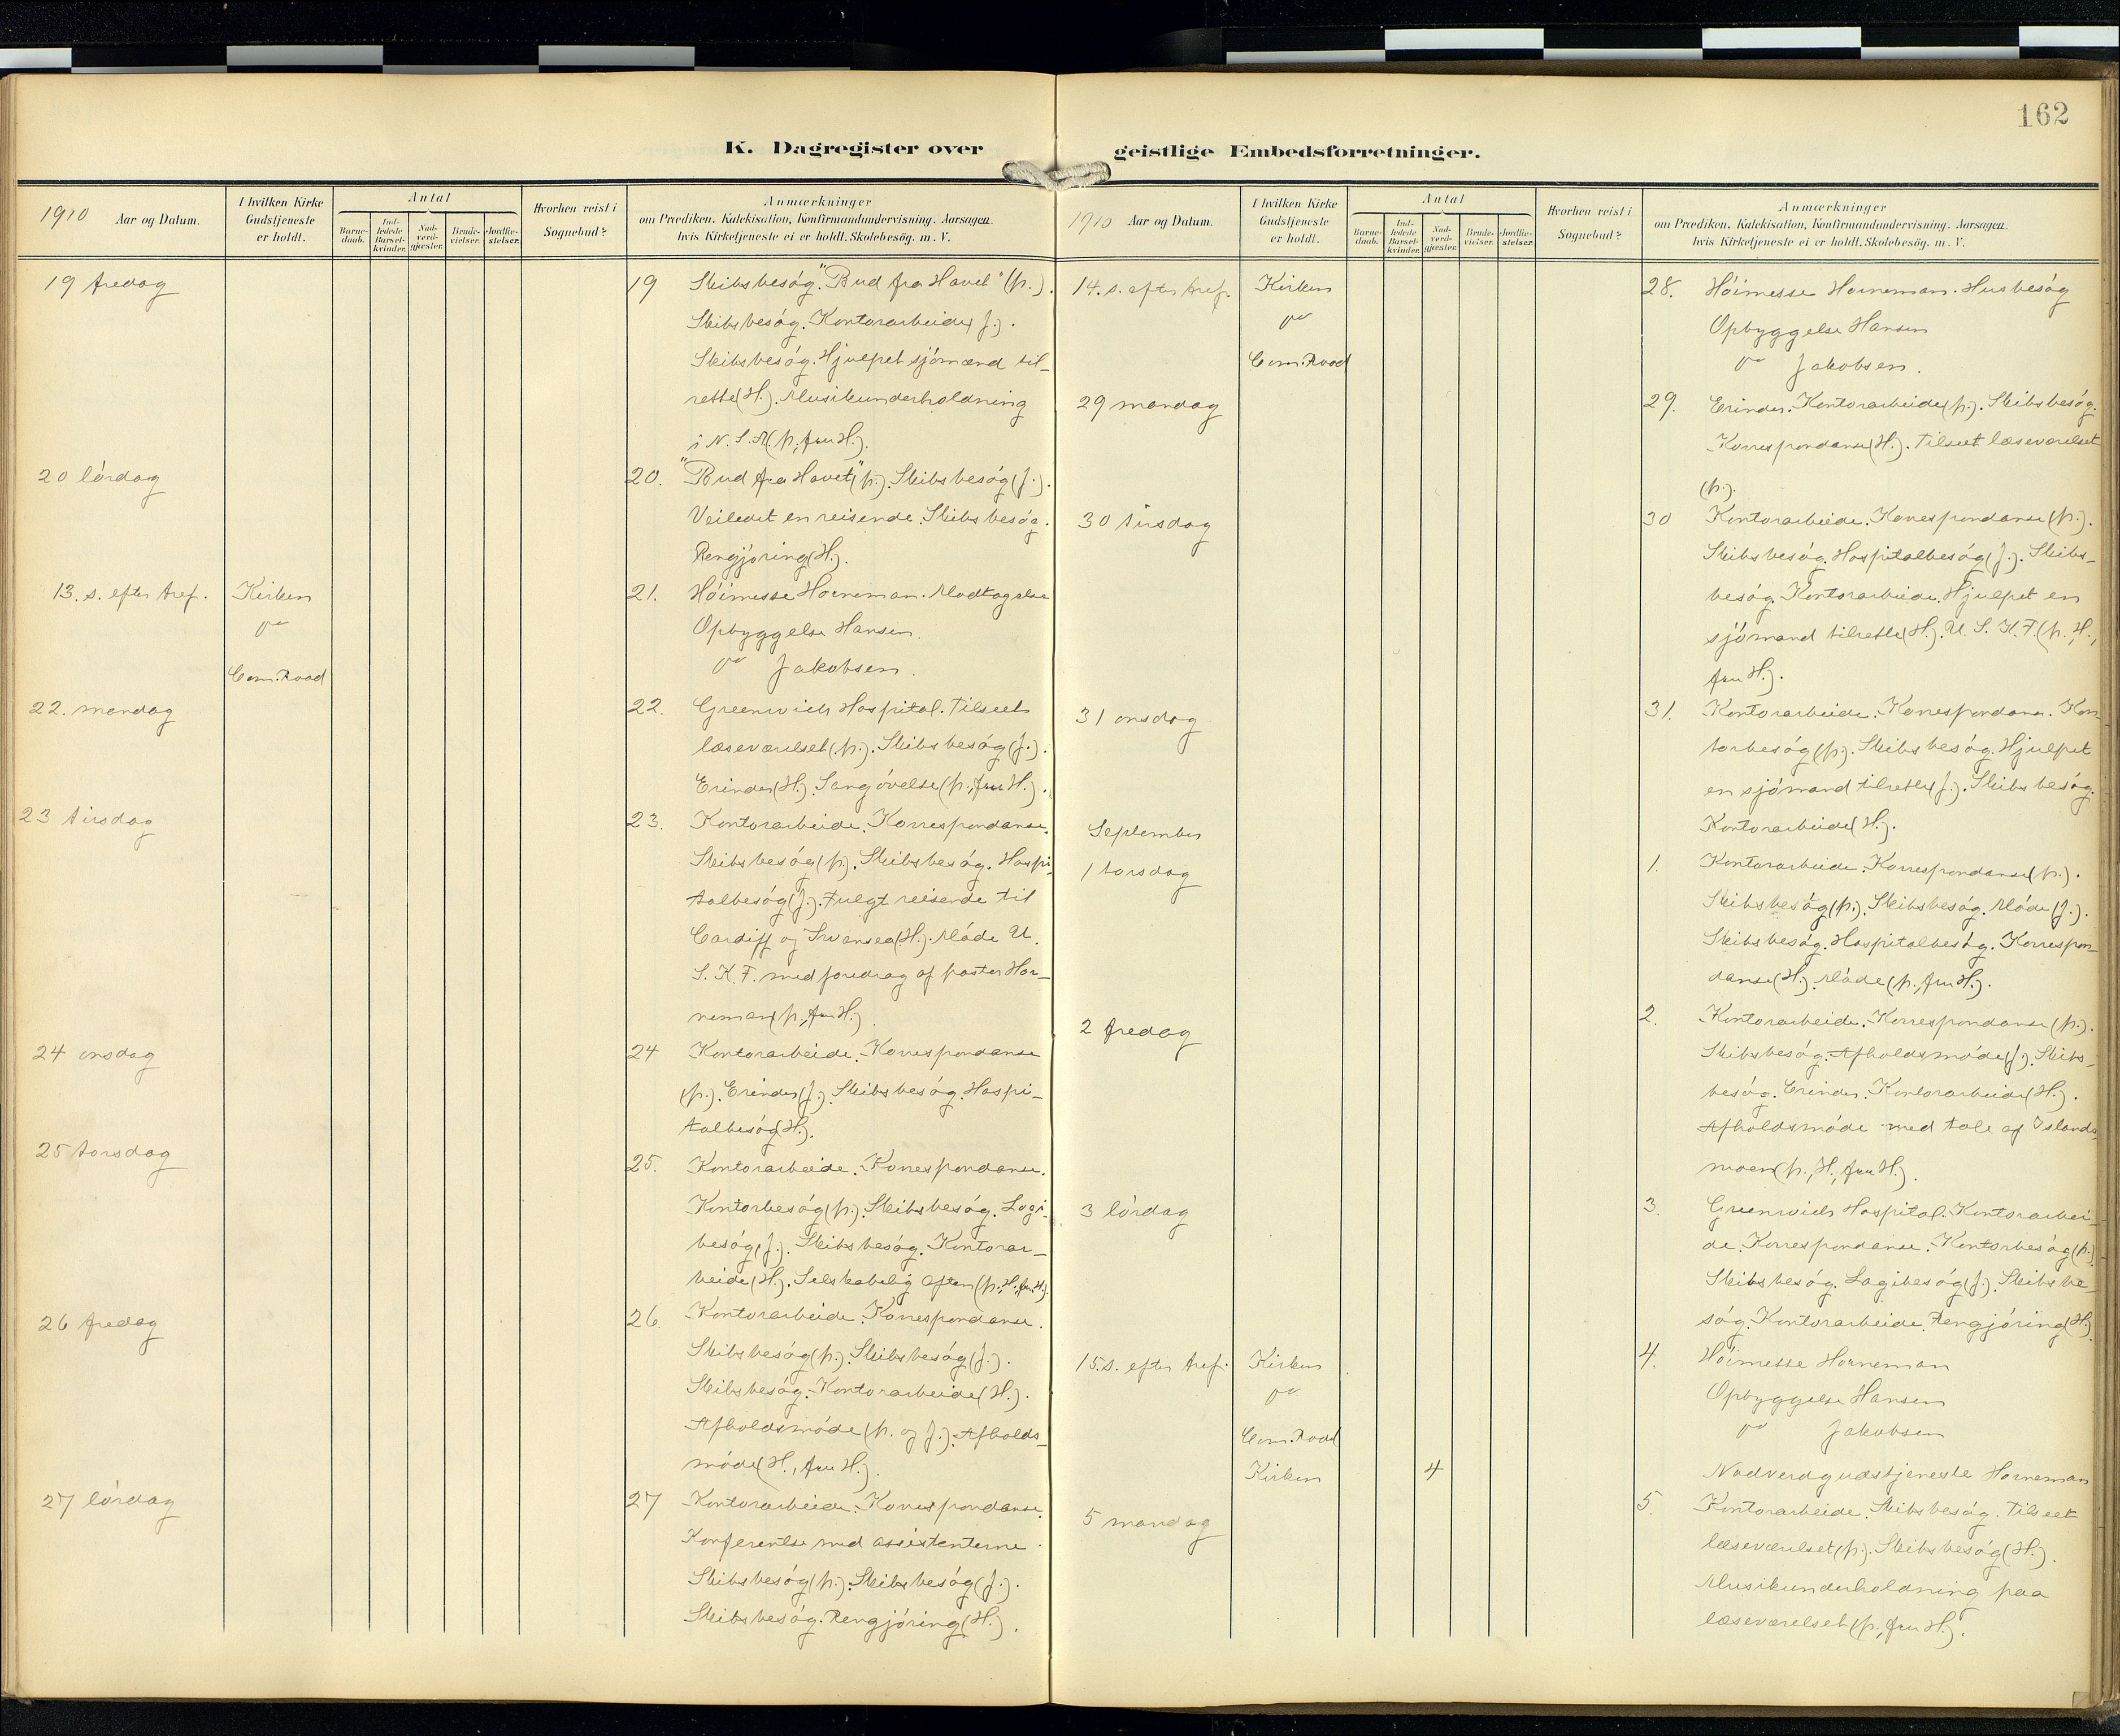 162
K. Dagregister over
geistlige Embedsforretninger.
1910 Aar og Datum.
I hvilken Kirke Gudstjeneste er holdt.
Antal
Barne-daab.
Ind-ledede Barsel-kvinder.
Nad-verd-gjæster.
Brude-vielser.
Jordfæ-stelser.
Hvorhen reist i Sognebud?
Anmærkninger
om Prædiken. Katekisation, Konfirmandundervisning. Aarsagen
hvis Kirketjeneste ei er holdt. Skolebesög. m. V.
19 fredag
19 Skibsbesóg. "Bud fra Havet" (p.).
Skibsbesóg. Kontorarbeide (J.).
Skibsbesóg. Hjulpet sjómænd til-
rette (H.). Musikunderholdning
i N. S. R. (p., fru H.).
20 lórdag
20. "Bud fra Havet" (p.). Skibsbesóg (J.).
Veiledet en reisende. Skibsbesóg.
Rengjóring (H.).
13. s. efter tref. Kirken
21. Hóimesse Horneman. Modtagelse
do
Opbyggelse Hansen.
Com. Road
do Jakobsen.
22. mandag
22. Greenwich Hospital. Tilseet
læseværelset (p.). Skibsbesóg (J.).
Erinder (H.). Sangóvelse (p., fru H.).
23 tirsdag
23. Kontorarbeide. Korrespondanse.
Skibsbesóg (p.). Skibsbesóg. Hospi-
talbesóg (J.). Fulgt reisende til
Cardiff og Swansea (H.). Móde U.
S. K. F. med foredrag af pastor Hor-
neman (p., fru H.)
24 onsdag
24 Kontorarbeide. Korrespondanse
(p.). Erinder (J.). Skibsbesóg. Hospi-
talbesóg (H.).
25 torsdag
25. Kontorarbeide. Korrespondanse.
Kontorbesóg (p.). Skibsbesóg. Logi-
besóg (J.). Skibsbesóg. Kontorar-
beide (H.). Selskabelig aften (p., H., fru H.).
26 fredag
26. Kontorarbeide. Korrespondanse.
Skibsbesóg (p.). Skibsbesóg (J.).
Skibsbesóg. Kontorarbeide (H.).
Afholdsmóde (p. og J.). Afholds-
móde (H., fru H.).
27 lórdag
27 Kontorarbeide. Korrespondanse.
Konferentse med assistenterne.
Skibsbesóg (p.). Skibsbesóg (J.).
Skibsbesóg. Rengjóring (H.).
1910 Aar og Datum.
I hvilken Kirke Gudstjeneste er holdt.
Antal
Barne-daab.
Ind-ledede Barsel-kvinder.
Nad-verd-gjæster.
Brude-vielser.
Jordfæ-stelser.
Hvorhen reist i Sognebud?
Anmærkninger
om Prædiken. Katekisation, Konfirmandundervisning. Aarsagen
hvis Kirketjeneste ei er holdt. Skolebesög. m. V.
14. s. efter tref. Kirken
28. Hóimesse Horneman. Husbesóg
do
Opbyggelse Hansen
Com. Road
do Jakobsen.
29 mandag
29. Erinder. Kontorarbeide (p.). Skibsbesóg.
Korrespondanse (H.). Tilseet læseværelset
(p.).
30 tirsdag
30 Kontorarbeide. Korrespondanse (p.).
Skibsbesóg. Hospitalbesóg (J.). Skibs-
besóg. Kontorarbeide. Hjulpet en
sjómand tilrette (H.). U. S. K. F. (p., H.,
fru H.).
31 onsdag
31. Kontorarbeide. Korrespondanse. Kon-
torbesóg (p.). Skibsbesóg. Hjulpet
en sjómand tilrette (J.). Skibsbesóg.
Kontorarbeide (H.).
September
1 torsdag
1. Kontorarbeide. Korrespondanse (p.).
Skibsbesóg (p.). Skibsbesóg. Móde (J.).
Skibsbesóg. Hospitalbesóg. Korrespon-
danse (H.). Móde (p., fru H.).
2 fredag
2. Kontorarbeide. Korrespondanse (p.).
Skibsbesóg. Afholdsmóde (J.). Skibs-
besóg. Erinder. Kontorarbeide (H.).
Afholdsmóde med tale af Islands-
moen (p., H., fru H.).
3 lórdag
3. Greenwich Hospital. Kontorarbei-
de. Korrespondanse. Kontorbesóg (p.)
Skibsbesóg. Logibesóg (J.). Skibsbe-
sóg. Kontorarbeide. Rengjóring (H.).
15. s. efter tref. Kirken
4. Hóimesse Horneman
do
Opbyggelse Hansen
Com. Road
do Jakobsen
Kirken 4
Nadverdgudstjeneste Horneman
5 mandag
5. Kontorarbeide. Skibsbesóg. Tilseet
læseværelset (p.). Skibsbesóg (H.).
Musikunderholdning paa
læseværelset (p., fru H.).